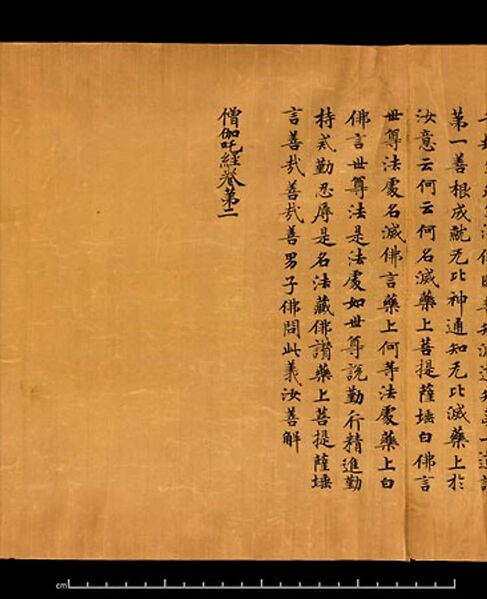 第一善根成就无比神通知无比滅藥上於
汝意云何云何名滅藥上菩提薩埵白佛言
世尊法處名滅佛言藥上何等法處藥上白
佛言世尊法是法處如世尊說勤行精進勤
持戒勤忍辱是名法藏佛讃藥上菩提薩埵
言善哉善哉善男子佛問此義汝善解
僧伽吒經卷第二
cm